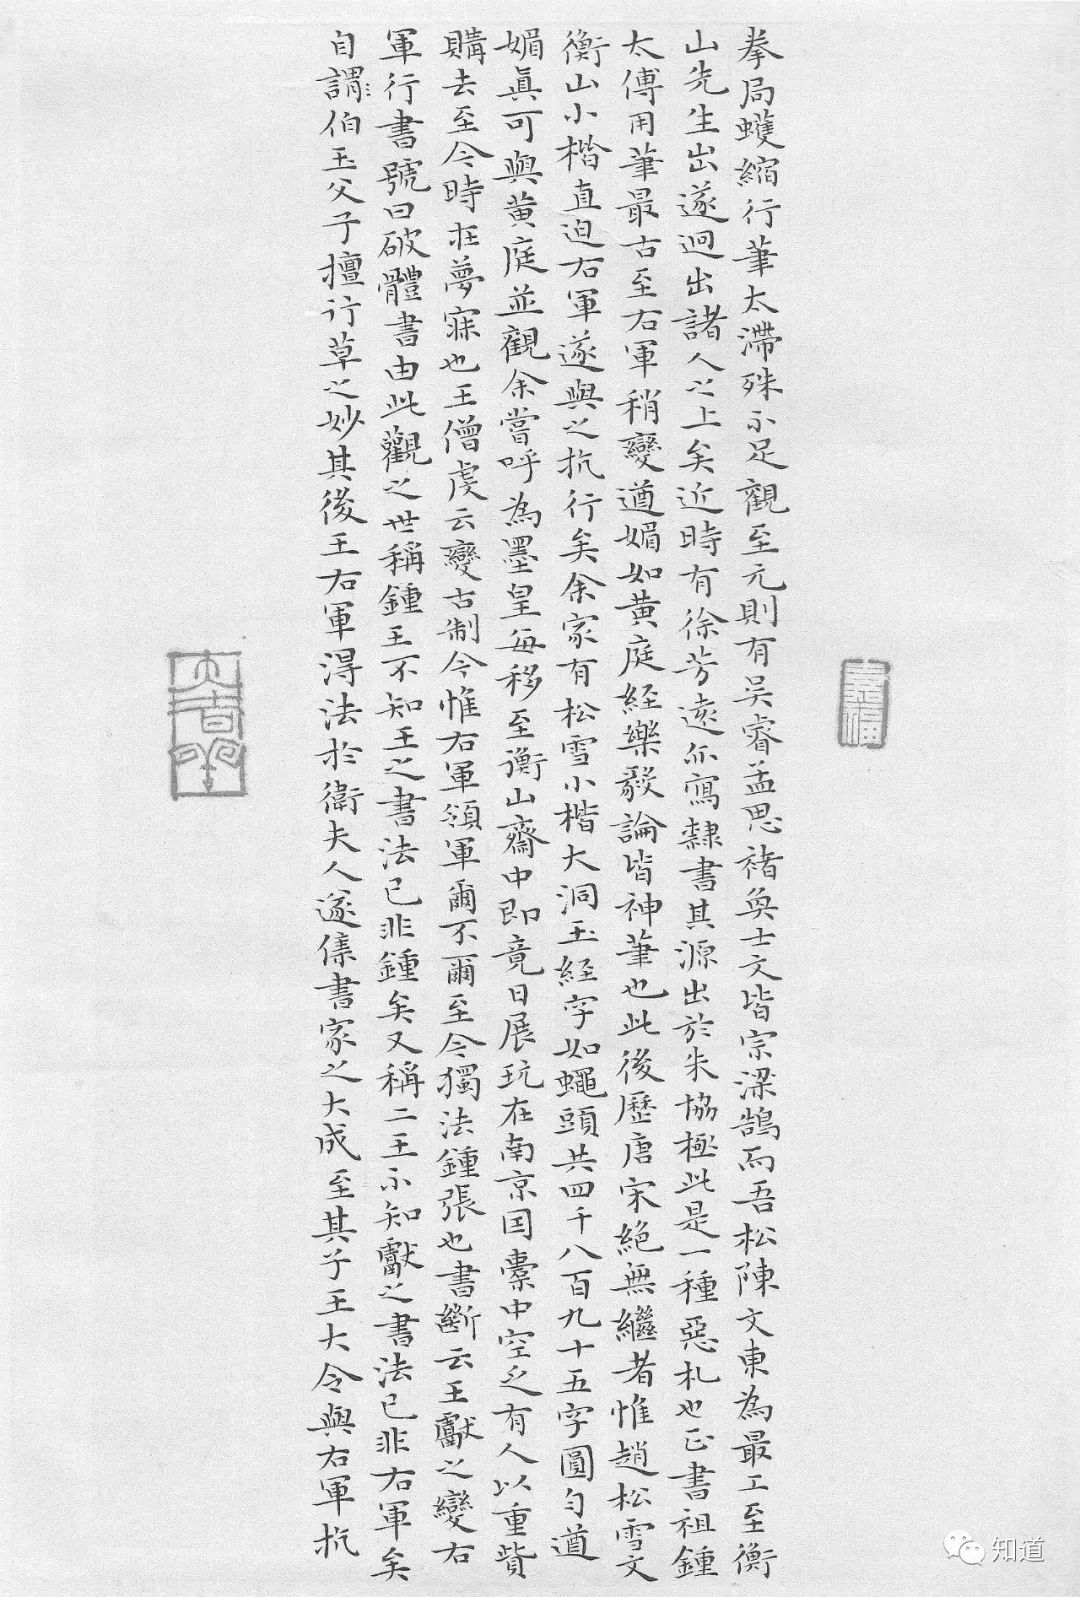 拳局蠖縮行筆太滯殊不足觀至元則有吳睿孟思褚奐士文皆宗梁鵠而吾松陳文東為最工至衡
山先生出遂迥出諸人之上矣近時有徐芳遠亦寫隸書其源出於朱協極此是一種惡札也正書祖鍾
太傅用筆最古至右軍稍變遒媚如黃庭經樂毅論皆神筆也此後歷唐宋絕無繼者惟趙松雪文
衡山小楷直迫右軍遂與之抗行矣余家有松雪小楷大洞玉經字如蠅頭共四千八百九十五字圓勻遒
媚真可與黃庭並觀余嘗呼為墨皇每移至衡山齋中即竟日展玩在南京因橐中空乏有人以重貲
購去至今時在夢寐也王僧虔云變古制今惟右軍領軍爾不爾至今獨法鍾張也書斷云王獻之變右
軍行書號曰破體書由此觀之世稱鍾王不知王之書法已非鍾矣又稱二王不知獻之書法已非右軍矣
自謂伯玉父子擅行草之妙其後王右軍得法於衛夫人遂集書家之大成至其子王大令與右軍抗
知道